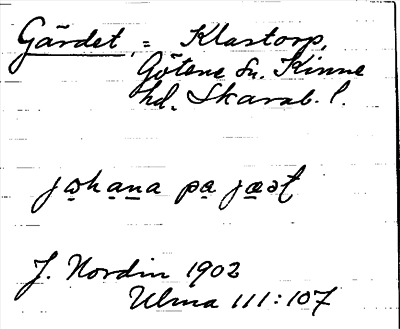 Gärdet, = Klastorp,
Götene sn. Kinne
hd. Skarab. l.
jo̱ha̱ṉa pa̱ jæ̱ət
J. Nordin 1902
Ulma 111:107